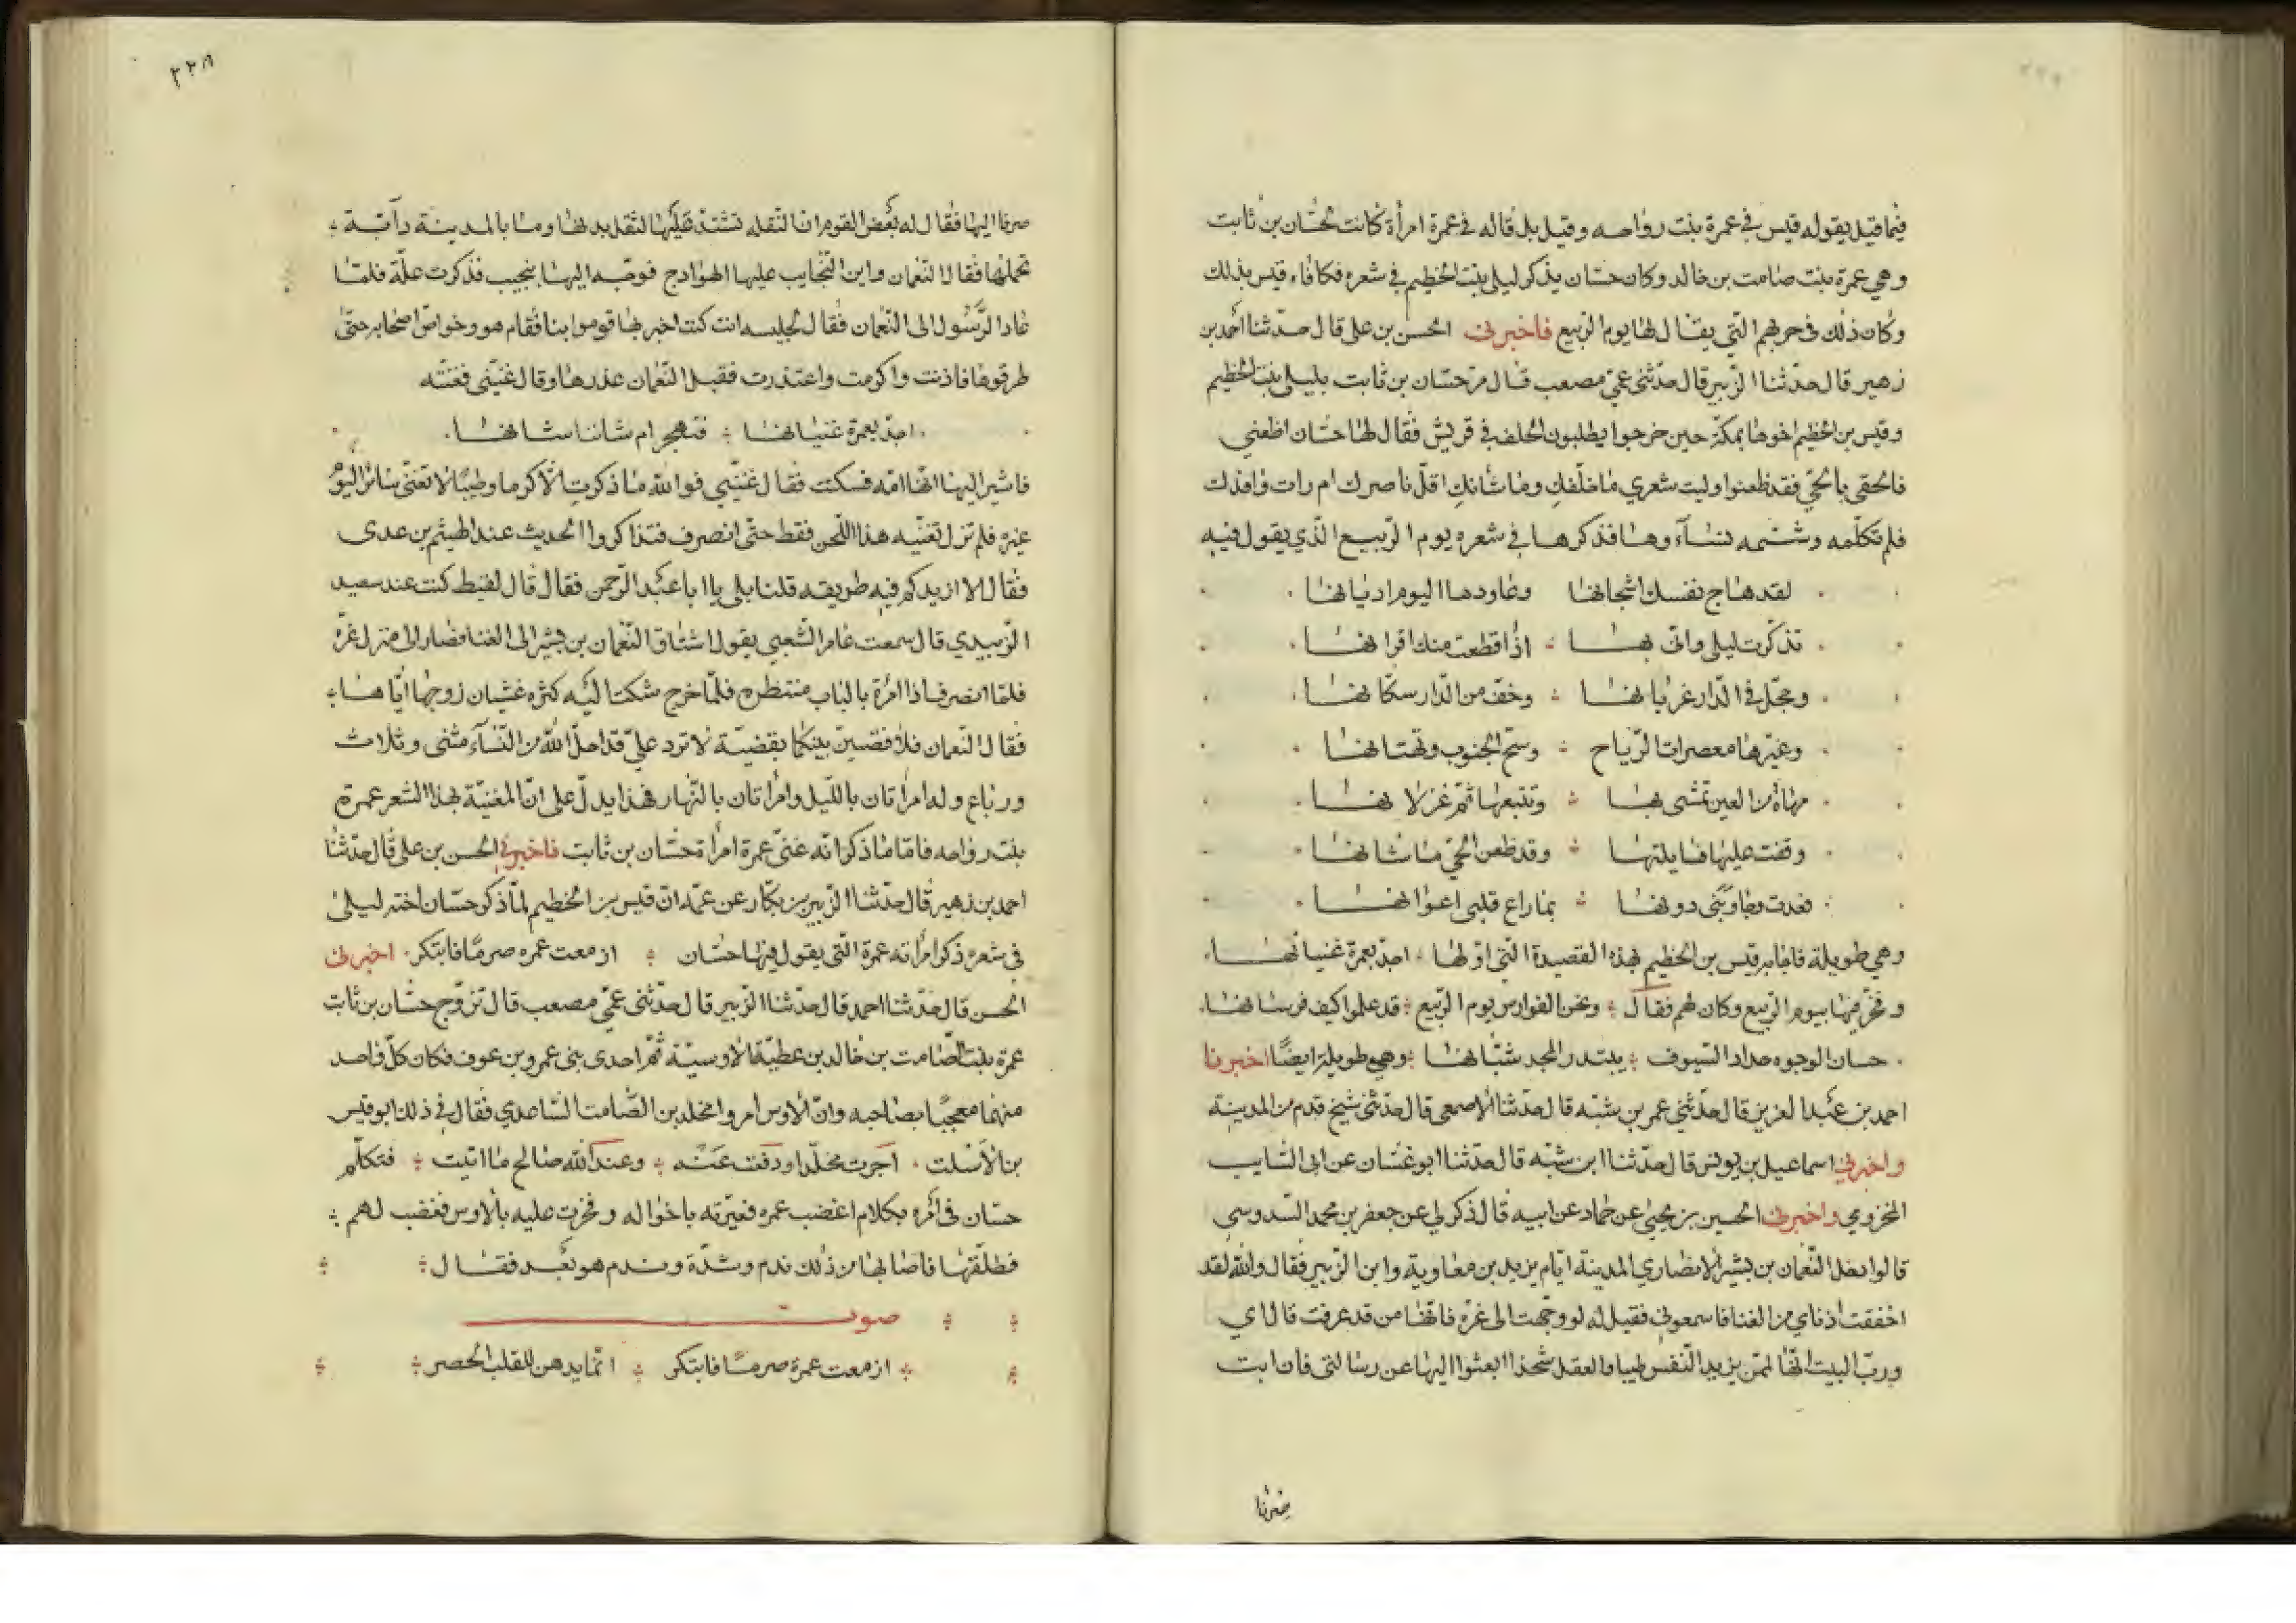 فيما قيل يقوله قيس في عمرة بنت رواحه وقيل بل قاله في عمرة امرأة كانت لحسان بن ثابت
وهي عمرة بنت صامت بن خالد وكان حسان يذكر ليلى بنت الخطيم في شعره فكافاه قيس بذلك
وكان ذلك في حربهم التي يقال لها يوم الربيع فاخبرني الحسن بن علي قال حدثنا احمد بن
زهير قال حدثنا الزبير قال حدثني عمي مصعب قال مر حسان بن ثابت بليلى بنت الخطيم
وقيس بن الخطيم اخوها بمكة حين خرجوا يطلبون الحلف في قريش فقال لها حسان اظعني
فالحقي بالحي فقد ظعنوا وليت شعري ما خلفك وما شانك اقل ناصرك ام راث رافدك
فلم تكلمه وشتمه نساؤها فذكرها في شعره يوم الربيع الذي يقول فيه
لقد هاج نفسك اشجانها وعاودها اليوم اديانها
تذكرت ليلى واني بها اذا قطعت منك اقرانها
وحجل في الدار غربانها وخف من الدار سكانها
وغيرها معصرات الرياح وسح الجنوب وتهتانها
مهاة من العين تمشي بها وتتبعها ثم غزلانها
وقفت عليها فسايلتها وقد ظعن الحي ما شانها
فعدت وجاوبني دونها بما راع قلبي اعوانها
وهي طويلة فاجابه قيس بن الخطيم بهذه القصيدة التي اولها اجد بعمرة غنيانها
وفخر فيها بيوم الربيع وكان لهم فقال ونحن الفوارس يوم الربيع قد علموا كيف فرسانها
حسان الوجوه حداد السيوف يبتدر المجد شبانها وهي طويلة ايضا اخبرنا
احمد بن عبد العزيز قال حدثني عمر بن شبه قال حدثنا الاصمعي قال حدثني شيخ قدم من المدينة
واخبرني اسماعيل بن يونس قال حدثنا ابن شبه قال حدثنا ابو غسان عن ابي السايب
المخزومي واخبرني الحسين بن يحيى عن حماد عن ابيه قال ذكر لي عن جعفر بن محمد السدوسي
قالوا دخل النعمان بن بشير الانصاري المدينة ايام يزيد بن معاوية وابن الزبير فقال والله لقد
اخفقت اذناي من الغنا فاسمعوني فقيل له لو وجهت الى عزة فانها من قد عرفت قال اي
ورب البيت انها لممن يزيد النفس طيبا والعقل شحذا ابعثوا اليها عن رسالتي فان ابت
صرنا
٢٢٨
صرنا اليها فقال له بعض القوم ان النقله تشتد عليها لثقل بدنها وما بالمدينة دآبة
تحملها فقال النعمان واين النجايب عليها الهوادج فوجه اليها بنجيب فذكرت علة فلما
عاد الرسول الى النعمان فقال لجليسه انت كنت اخبر بها قوموا بنا فقام هو وخواص اصحابه حتى
طرقوها فاذنت واكرمت واعتذرت فقبل النعمان عذرها وقال غنيني فغنته
اجد بعمرة غنيانها فتهجر ام شاننا شانها
فاشير اليها انها امه فسكتت فقال غنيني فوالله ما ذكرت الا كرما وطيبا لا تغني سائر اليوم
غيره فلم تزل تغنيه هذا اللحن فقط حتى انصرف فتذاكروا الحديث عند الهيثم بن عدي
فقال الا ازيدكم فيه طريقه قلنا بلى يا ابا عبد الرحمن فقال قال لقيط كنت عند سعيد
الزبيدي قال سمعت عامر الشعبي يقول اشتاق النعمان بن بشير الى الغنا فصار الى منزل عزة
فلما انصرف اذا امرأة بالباب منتظره فلما خرج شكت اليه كثره غشيان زوجها اياها
فقال النعمان فلاقضين بينكما بقضية لا ترد علي قد احل الله من النسآء مثنى وثلاث
ورباع وله امرأتان بالليل وامرأتان بالنهار فهذا يدل على ان المغنية بهذا الشعر عمره
بنت رواحه فاما ما ذكر انه عني عمرة امرأة حسان بن ثابت فاخبرني الحسن بن علي قال حدثنا
احمد بن زهير قال حدثنا الزبير بن بكار عن عمه ان قيس بن الخطيم لما ذكر حسان اخته ليلى
في شعره ذكر امرأته عمرة التي يقول فيها حسان ازمعت عمره صرما فابتكر اخبرني
الحسن قال حدثنا احمد قال حدثنا الزبير قال حدثني عمي مصعب قال تزوج حسان بن ثابت
عمرة بنت الصامت بن خالد بن عطية الاوسية ثم احدى بني عمرو بن عوف فكان كل واحد
منهما معجبا بصاحبه وان الاوس امروا مخلد بن الصامت الساعدي فقال في ذلك ابو قيس
بن الاسلت اجرت مخلدا ودفعت عنه وعند الله صالح ما اتيت فتكلم
حسان في امره بكلام اغضب عمره فعيرته باخواله وفخرت عليه بالاوس فغضب لهم
فطلقها فاصابها من ذلك ندم وشدة وندم هو بعد فقال
صوت
ازمعت عمرة صرما فابتكر انما يدهن للقلب الحصر